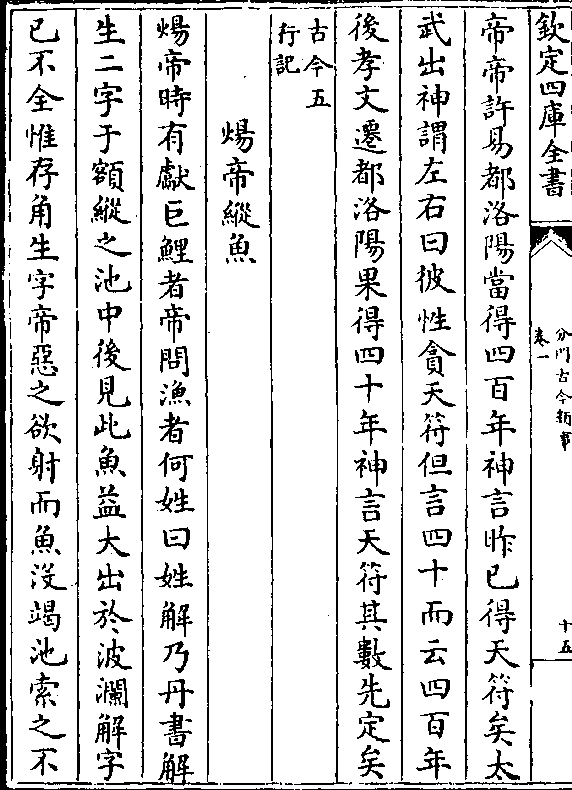 欽定四庫全書
分門古今類事
卷一
十五
帝帝許易都洛陽當得四百年神言昨已得天符矣太
武出神謂左右曰彼性貪天符但言四十而云四百年
後孝文遷都洛陽果得四十年神言天符其數先定矣
古今五
行記
煬帝縱魚
煬帝時有獻巨鯉者帝問漁者何姓曰姓解乃丹書解
生二字于額縱之池中後見此魚益大出於波瀾解字
已不全惟存角生字帝惡之欲射而魚沒竭池索之不